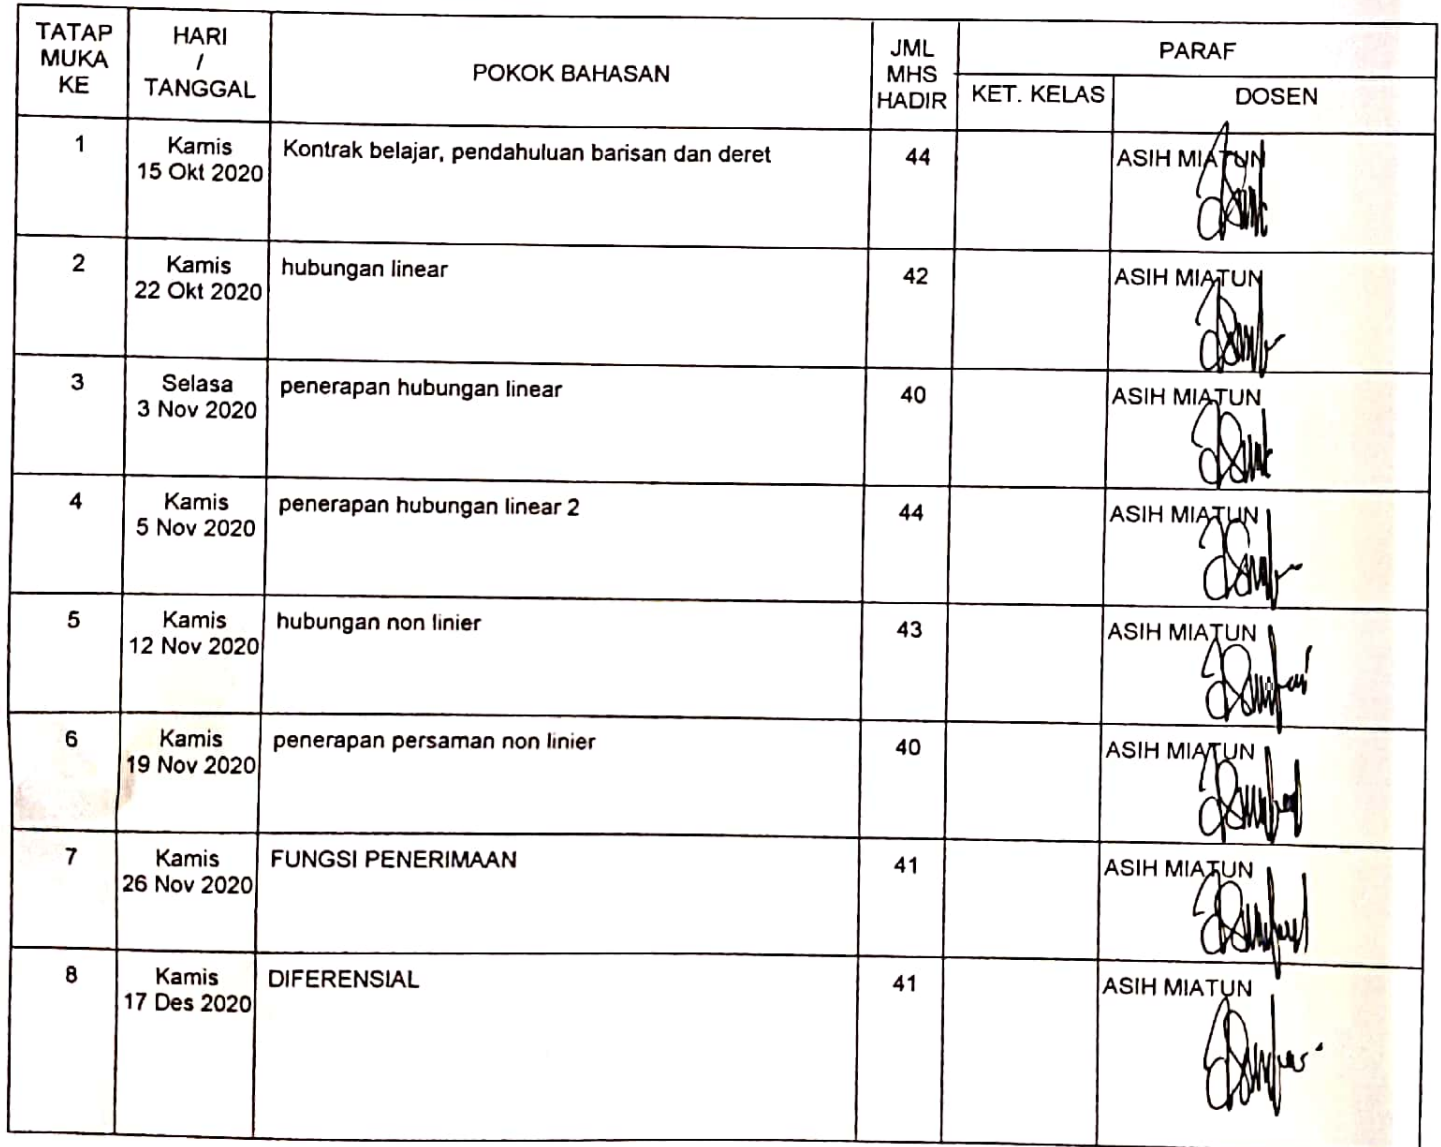 TATAP MUKA KE
HARI / TANGGAL
POKOK BAHASAN
JML MHS HADIR
PARAF
KET. KELAS
DOSEN
1
Kamis
15 Okt 2020
Kontrak belajar, pendahuluan barisan dan deret
44
ASIH MIATUN
2
Kamis
22 Okt 2020
hubungan linear
42
ASIH MIATUN
3
Selasa
3 Nov 2020
penerapan hubungan linear
40
ASIH MIATUN
4
Kamis
5 Nov 2020
penerapan hubungan linear 2
44
ASIH MIATUN
5
Kamis
12 Nov 2020
hubungan non linier
43
ASIH MIATUN
6
Kamis
19 Nov 2020
penerapan persaman non linier
40
ASIH MIATUN
7
Kamis
26 Nov 2020
FUNGSI PENERIMAAN
41
ASIH MIATUN
8
Kamis
17 Des 2020
DIFERENSIAL
41
ASIH MIATUN